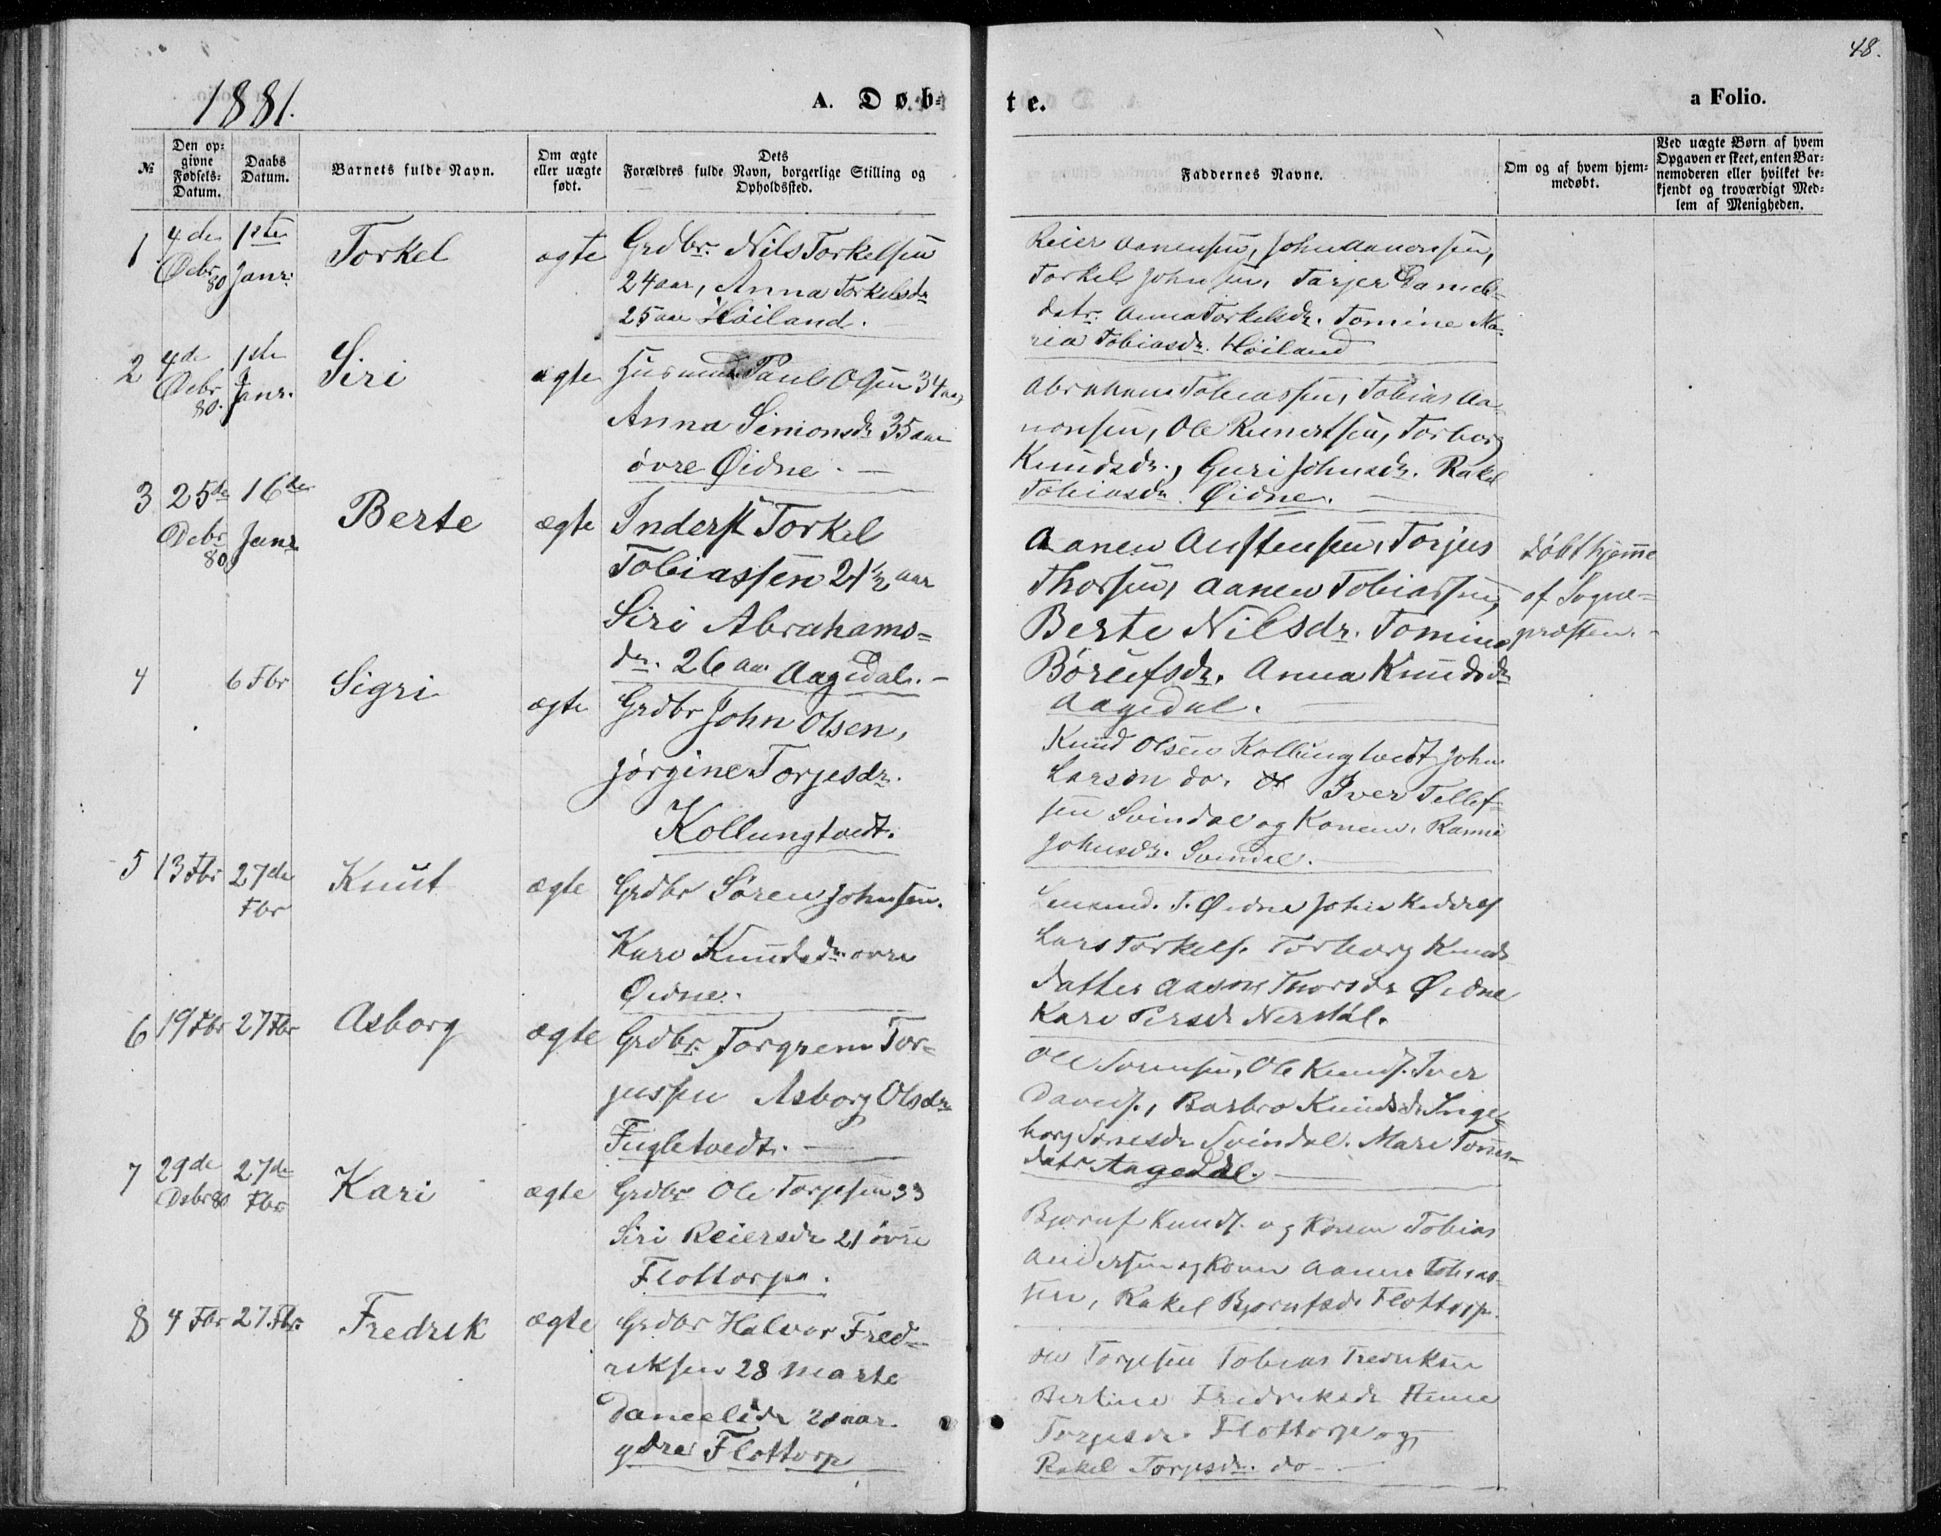 48.
1881.
A. Døb-
te.
a Folio.
№
Den op-
givne
Fødsels-
Datum.
Daabs
Datum.
Barnets fulde Navn.
Om ægte
eller uægte
født.
Dets
Forældres fulde Navn, borgerlige Stilling og
Opholdssted.
Faddernes Navne.
Om og af hvem hjem-
medøbt.
Ved uægte Børn af hvem
Opgaven er skeet, enten Bar-
nemoderen eller hvilket be-
kjendt og troværdigt Med-
lem af Menigheden.
1
4de
Debr
80
1ste
Janr.
Torkel
ægte
Grdbr. Nils Torkelsen
24 aar, Anna Torkelsdr
25 aar Høiland.
Reier Aanensen, John Aanensen,
Torkel Johnsen, Tarjer Daniels-
datr. Anna Torkelsdr. Tomine Ma-
ria Tobiasdr. Høiland
2
4de
Debr
80.
1de
Janr.
Siri
ægte
Husmand Paul Olsen 34 aar
Anna Simonsdr 35 aar
øvre Øidne.
Abraham Tobiassen, Tobias Aa-
nensen, Ole Reinertsen, Torborg
Knudsdr., Guri Johnsdr. Rakel
Tobiasdr Øidne.
3
25de
Debr
80
16de
Janr
Berte
ægte
Inderst Torkel
Tobiassen 21½ aar
Siri Abrahams-
dr. 26 aar Aagedal.
Aanen Austensen, Torjus
Thorsen, Aanen Tobiassen,
Berte Nilsdr. Tomine
Børufsdr. Anna Knudsdr
Aagedal.
Døbt hjemme
af Sogne-
præsten.
4
6 Fbr
Sigri
ægte
Grdbr John Olsen,
Jørgine Torjesdr.
Kollungtvedt.
Knud Olsen Kollungtvedt John
Larsen do. Iver Tellef-
sen Svindal og Konen, Rannei
Johnsdr. Svindal.
5
13 Fbr
27de
Fbr
Knut
ægte
Grdbr Søren Johnsen.
Kari Knudsdr øvre
Øidne.
T. Øidne John
Lars Torkels. Torborg Knuds
datter Aasne Thorsdr Øidne
Kari Persdr Nerstøl.
6
19 Fbr
27 Fbr
Asborg
ægte
Grdbr. Torgrem Tor-
jussen Asborg Olsdr
Fugletvedt.
Ole Sørensen, Ole Knuds. Iver
Davids., Barbro Knudsdr Inge-
borg Svindal. Mari Toms-
datr Aagedal.
7
29de
Debr 80
27de
Fbr
Kari
ægte
Grdbr Ole Torjesen 33
Siri Reiersdr 21 øvre
Flottorp.
Bjornf Knuds. og Konen Tobias
Andersen og Konen Aanen Tobias-
sen, Rakel Bjornfsdr Flottorp.
8
4 Fbr
27. Fbr.
Fredrik
ægte
Grdbr Halvor Fred-
riksen 28 Marte
Danielsdr 21 aar.
ydre Flottorp
Ole Torjesen Tobias Fredriksen
Bertine Fredriksdr Anne
Torjesdr. Flottorp og
Rakel Torjesdr. do